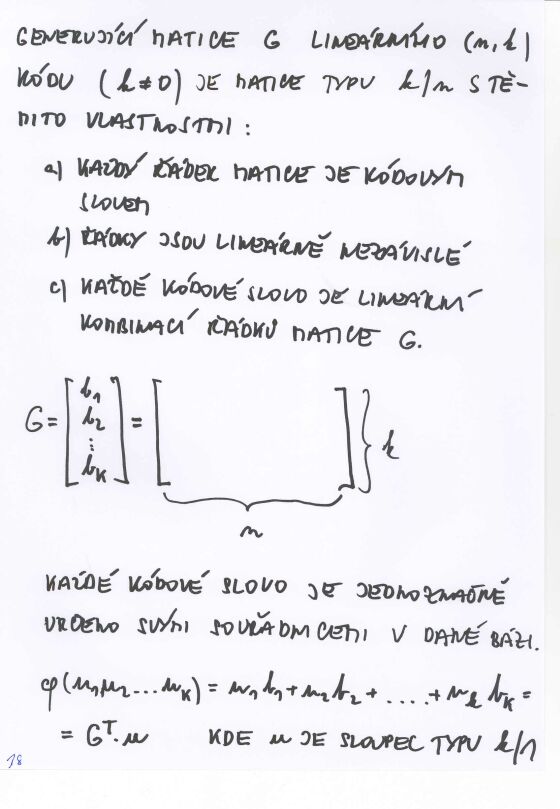 GENERUJÍCÍ MATICE G LINEÁRNÍHO (n,k)
KÓDU (k≠0) JE MATICE TYPU k/n S TĚ-
MITO VLASTNOSTMI:
a) KAŽDÝ ŘÁDEK MATICE JE KÓDOVÝM
SLOVEM
b) ŘÁDKY JSOU LINEÁRNĚ NEZÁVISLÉ
c) KAŽDÉ KÓDOVÉ SLOVO JE LINEÁRNÍ
KOMBINACÍ ŘÁDKŮ MATICE G.
G = [b₁ b₂ ⋮ bₖ] = [ ] } k
n
KAŽDÉ KÓDOVÉ SLOVO JE JEDNOZNAČNĚ
URČENO SVÝMI SOUŘADNICEMI V DANÉ BÁZI.
φ(u₁u₂...uₖ) = u₁b₁+u₂b₂+....+uₖbₖ =
= Gᵀ.u KDE u JE SLOUPEC TYPU k/1
18